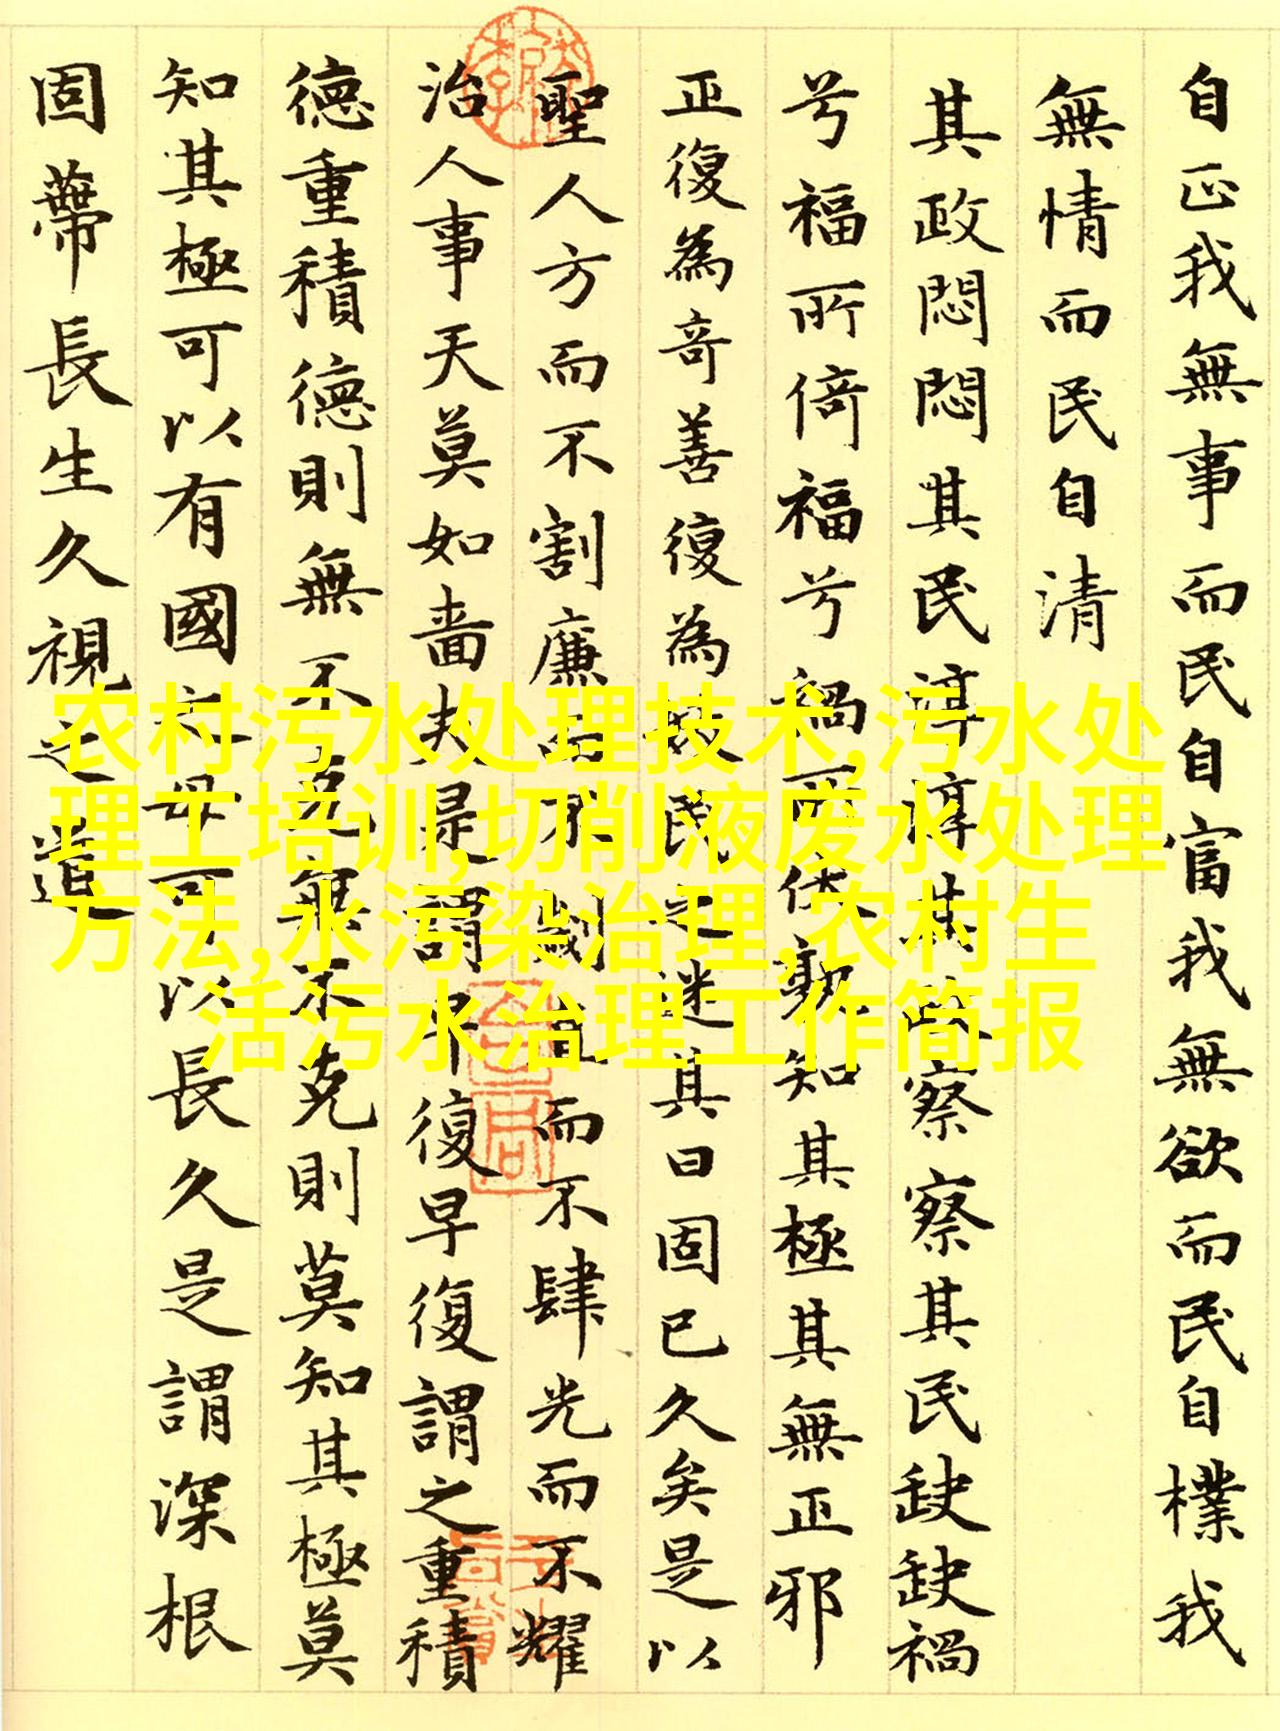 自正我無事而民自富我無欲而民自樸我
無情而民自清
其政悶悶其民淳淳其政察察其民缺缺禍
兮福所倚福兮禍所伏孰知其極其無正邪
正復為奇善復為妖民之迷其日固已久矣是以
聖人方而不割廉而不劌直而不肆光而不耀
治人事天莫如嗇夫是謂早復早復謂之重積
德重積德則無不克無不克則莫知其極莫
知其極可以有國之母可以長久是謂深根
固蔕長生久視之道
农村污水处理技术,污水处
理工培训,切削液废水处理
方法,水污染治理,农村生
活污水治理工作简报